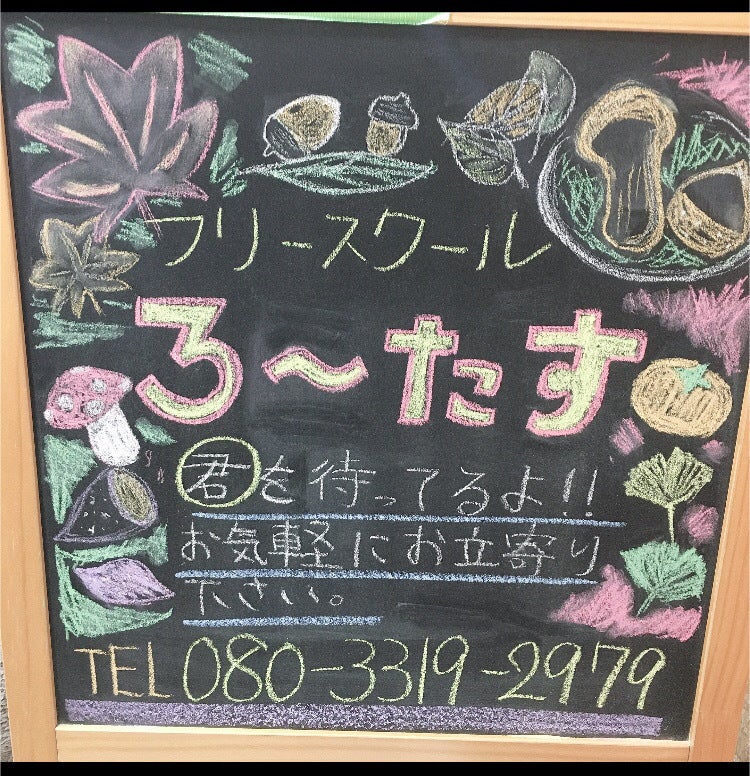 フリースクール
ろ〜たす
君を待ってるよ!!
お気軽にお立寄り
下さい。
TEL 080-3319-2979